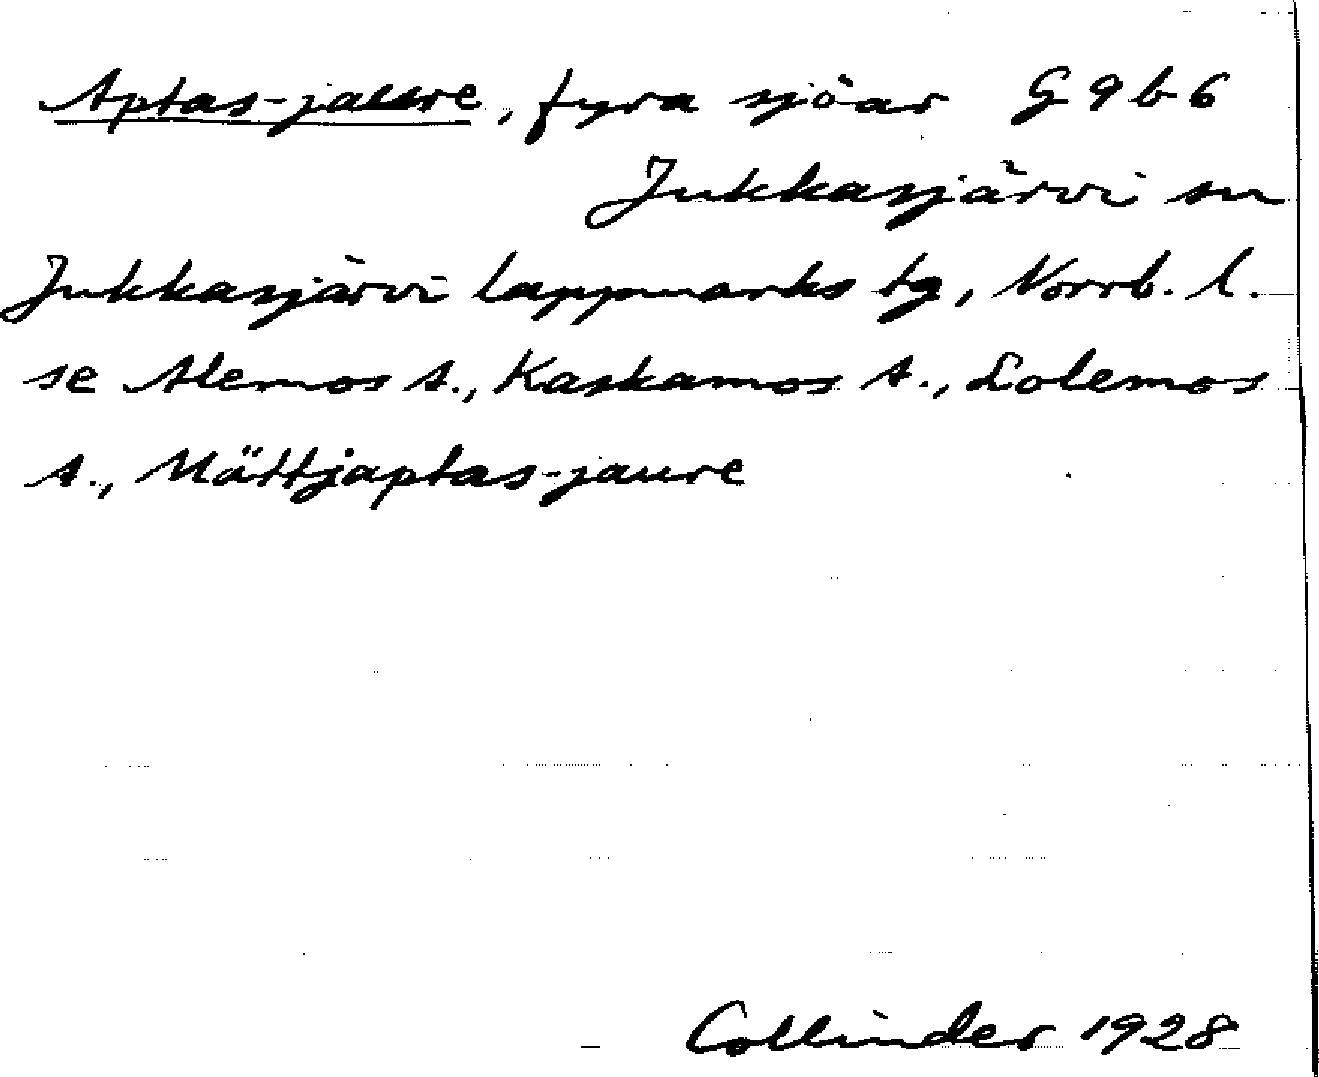 Aptas-jaure, fyra sjöar G 9 b 6
Jukkasjärvi sn
Jukkasjärvi lappmarks tg, Norrb. l.
se Alemos A., Kaskamos A., Lolemos
A., Mättjaptas-jaure
Collinder 1928